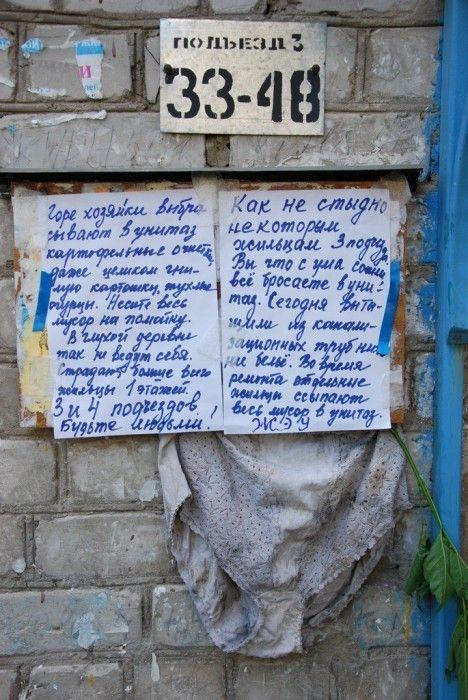 ПОДЪЕЗД 3
33-48
И
Горе хозяйки выбра
сывают в унитаз
картофельные очистки,
даже целиком гни-
лую картошку, тухлые
огурцы. Несите весь
мусор на помойку.
В глухой деревни
так не ведут себя.
Страдают больше всего
жильцы 1 этажей.
3 и 4 подъездов
Будьте людьми!
Как не стыдно
некоторым
жильцам 3 подъезда
Вы что с ума сошли
всё бросаете в уни-
таз. Сегодня выта-
щили из канали-
зационных труб ниж-
ни бельё. Во время
ремонта отдельные
жильцы ссыпают
весь мусор в унитаз.
ЖЭУ